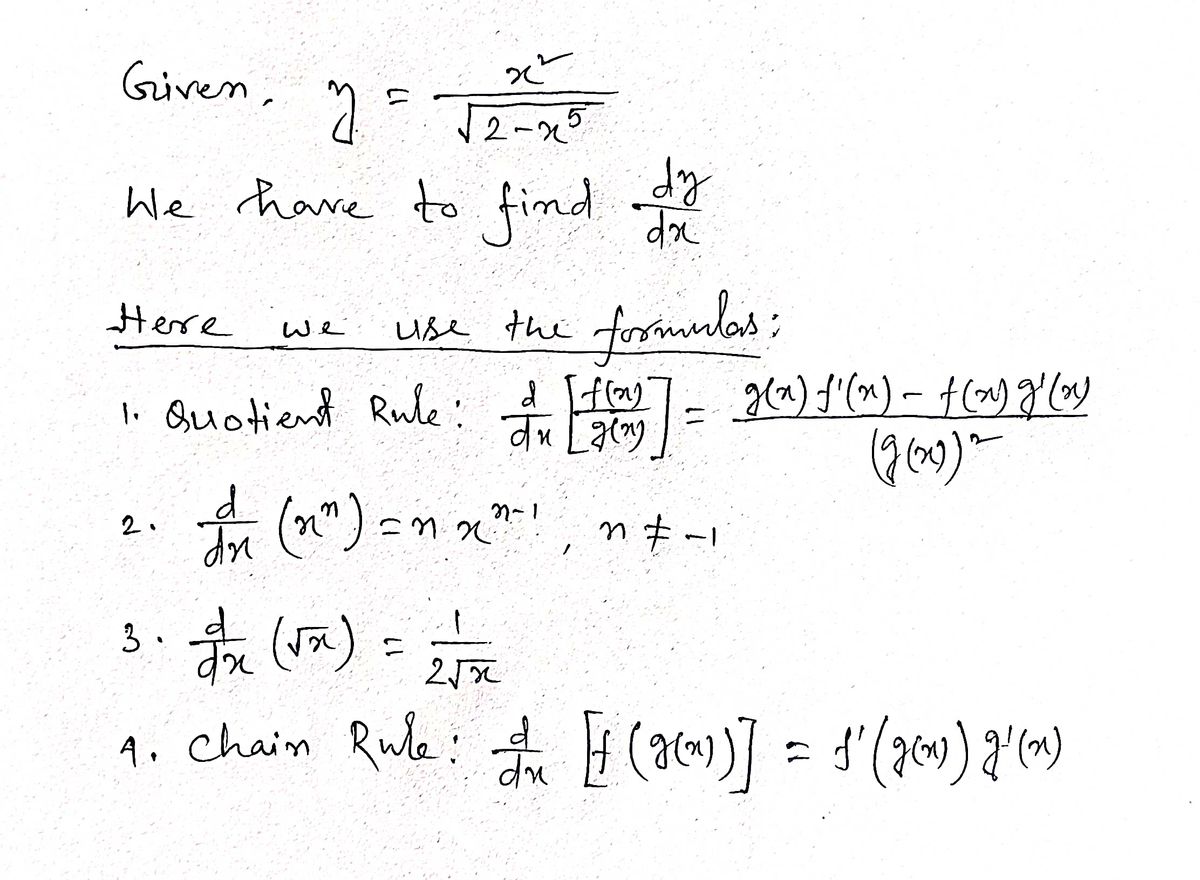 Given, y = x² / √(2-x⁵)
We have to find dy/dx
Here we use the formulas:
1. Quotient Rule: d/dx [f(x)/g(x)] = (g(x) f'(x) - f(x) g'(x)) / (g(x))²
2. d/dx (xⁿ) = n xⁿ⁻¹, n ≠ -1
3. d/dx (√x) = 1/(2√x)
4. Chain Rule: d/dx [f(g(x))] = f'(g(x)) g'(x)